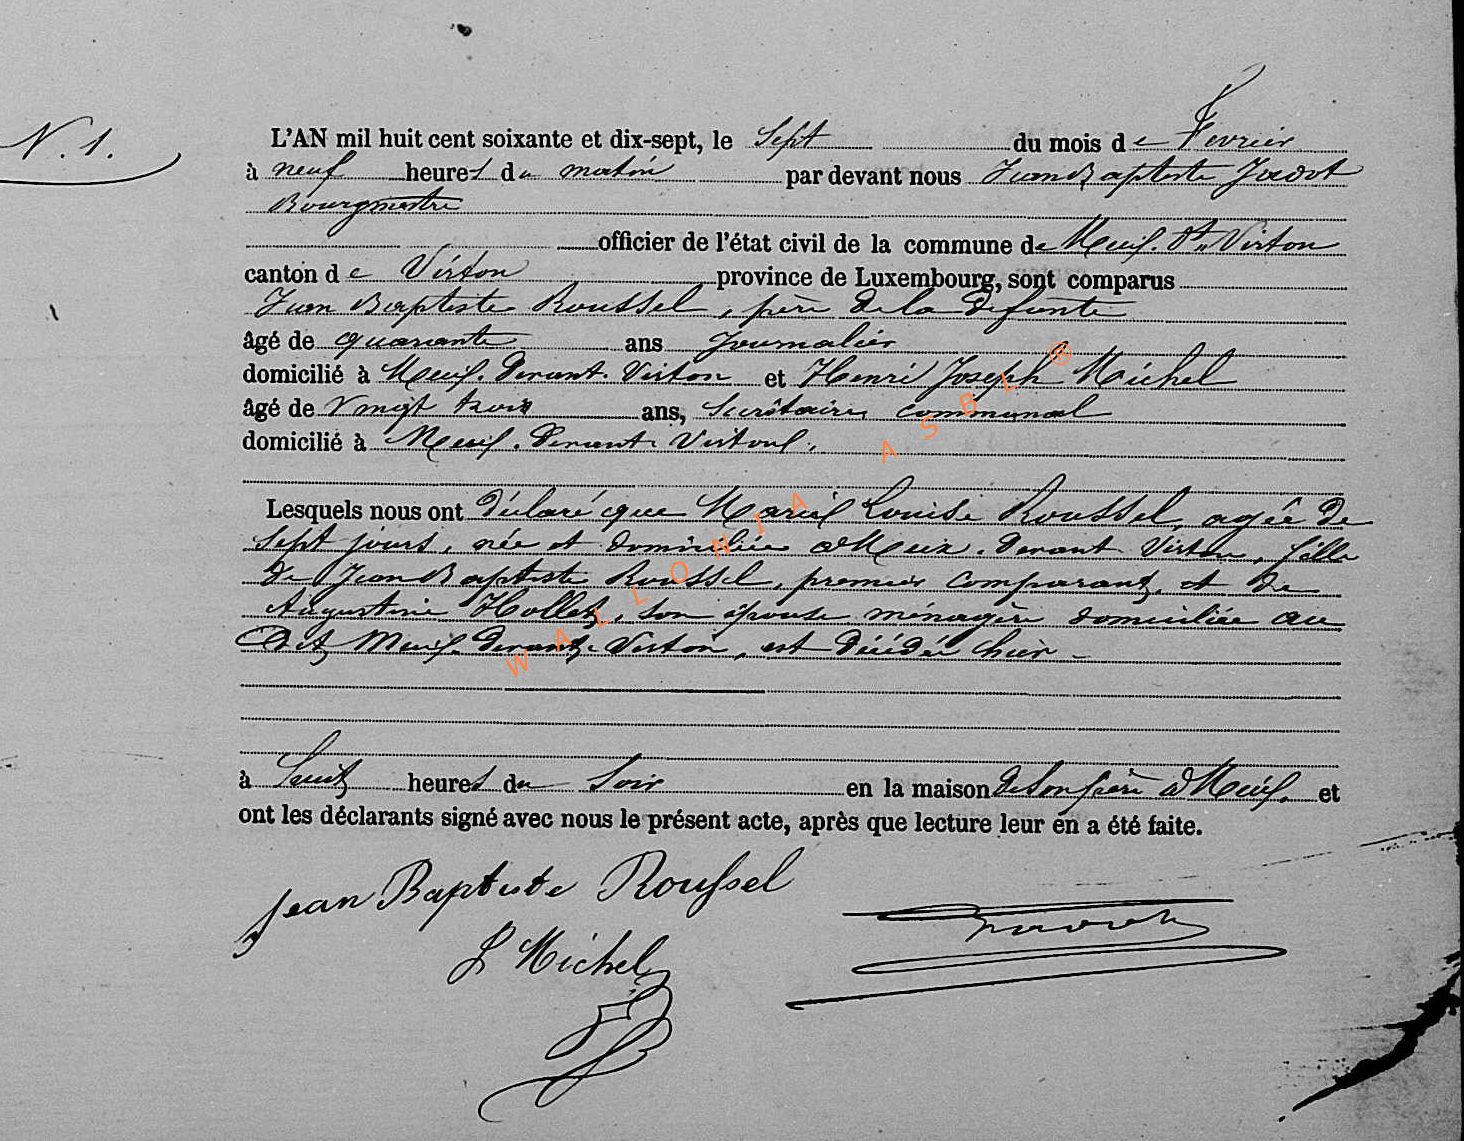 N. 1.
L'AN mil huit cent soixante et dix-sept, le Sept du mois de Fevrier
à neuf heures du matin par devant nous Jean Baptiste Jadot
Bourgmestre
officier de l'état civil de la commune de Meix. dt. Virton
canton de Virton province de Luxembourg, sont comparus
Jean Baptiste Roussel, père de la défunte
âgé de quarante ans journalier
domicilié à Meix. Devant. Virton et Henri Joseph Michel
âgé de Vingt trois ans, Secrétaire communal
domicilié à Meix. Devant Virton.
Lesquels nous ont Déclaré que Marie Louise Roussel, agée de
Sept jours, née et domiciliée à Meix. devant Virton, fille
de Jean Baptiste Roussel, premier comparant, et de
Augustine Hollet, son épouse ménagère domiciliée au
Dit Meix Devant Virton, est Décédée hier
à huit heures du Soir en la maison de son père à Meix. et
ont les déclarants signé avec nous le présent acte, après que lecture leur en a été faite.
Jean Baptiste Roussel
Michel
WALLONIA ASBL ®